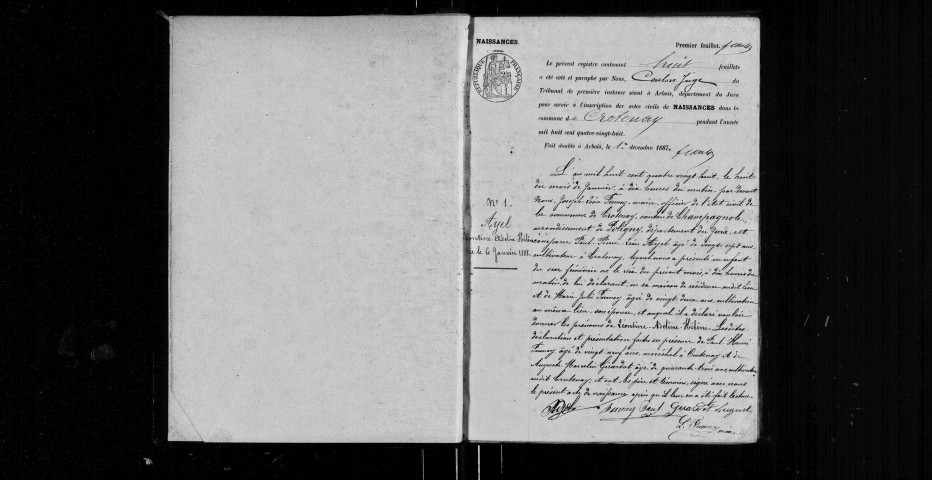 NAISSANCES.
Premier feuillet.
RÉPUBLIQUE FRANÇAISE
Le présent registre contenant huit feuillets
a été coté et paraphé par Nous, Juge du
Tribunal de première instance séant à Arbois, département du Jura
pour servir à l'inscription des actes civils de NAISSANCES dans la
commune de Crotenay pendant l'année
mil huit cent quatre-vingt-huit.
Fait double à Arbois, le 1er décembre 1887.
N° 1.
Ayel
Léontine Adeline Hélène
née le 6 Janvier 1888.
L'an mil huit cent quatre vingt huit, le huit
du mois de Janvier, à dix heures du matin, par devant
Nous, Joseph Léon Tunney, maire, officier de l'état civil de
la commune de Crotenay, canton de Champagnole,
arrondissement de Poligny, département du Jura, est
comparu Paul Pierre Léon Ayel âgé de vingt sept ans,
cultivateur à Crotenay, lequel nous a présenté un enfant
du sexe féminin né le six du présent mois, à dix heures du
matin, de lui déclarant, en sa maison de résidence audit lieu
et de Marie Tunney âgée de vingt deux ans, cultivatrice
au même lieu, son épouse, et auquel il a déclaré vouloir
donner les prénoms de Léontine-Adeline-Hélène. Lesdites
déclaration et présentation faites en présence de Paul Henri
Tunney âgé de vingt neuf ans, maréchal à Crotenay et de
Auguste Marcelin Girardot âgé de quarante trois ans cultivateur
audit Crotenay, et ont les père et témoins, signé avec nous
le présent acte de naissance après qu'il leur en a été fait lecture.
Ayel Tunney Paul Girardot August
L. Tunney maire